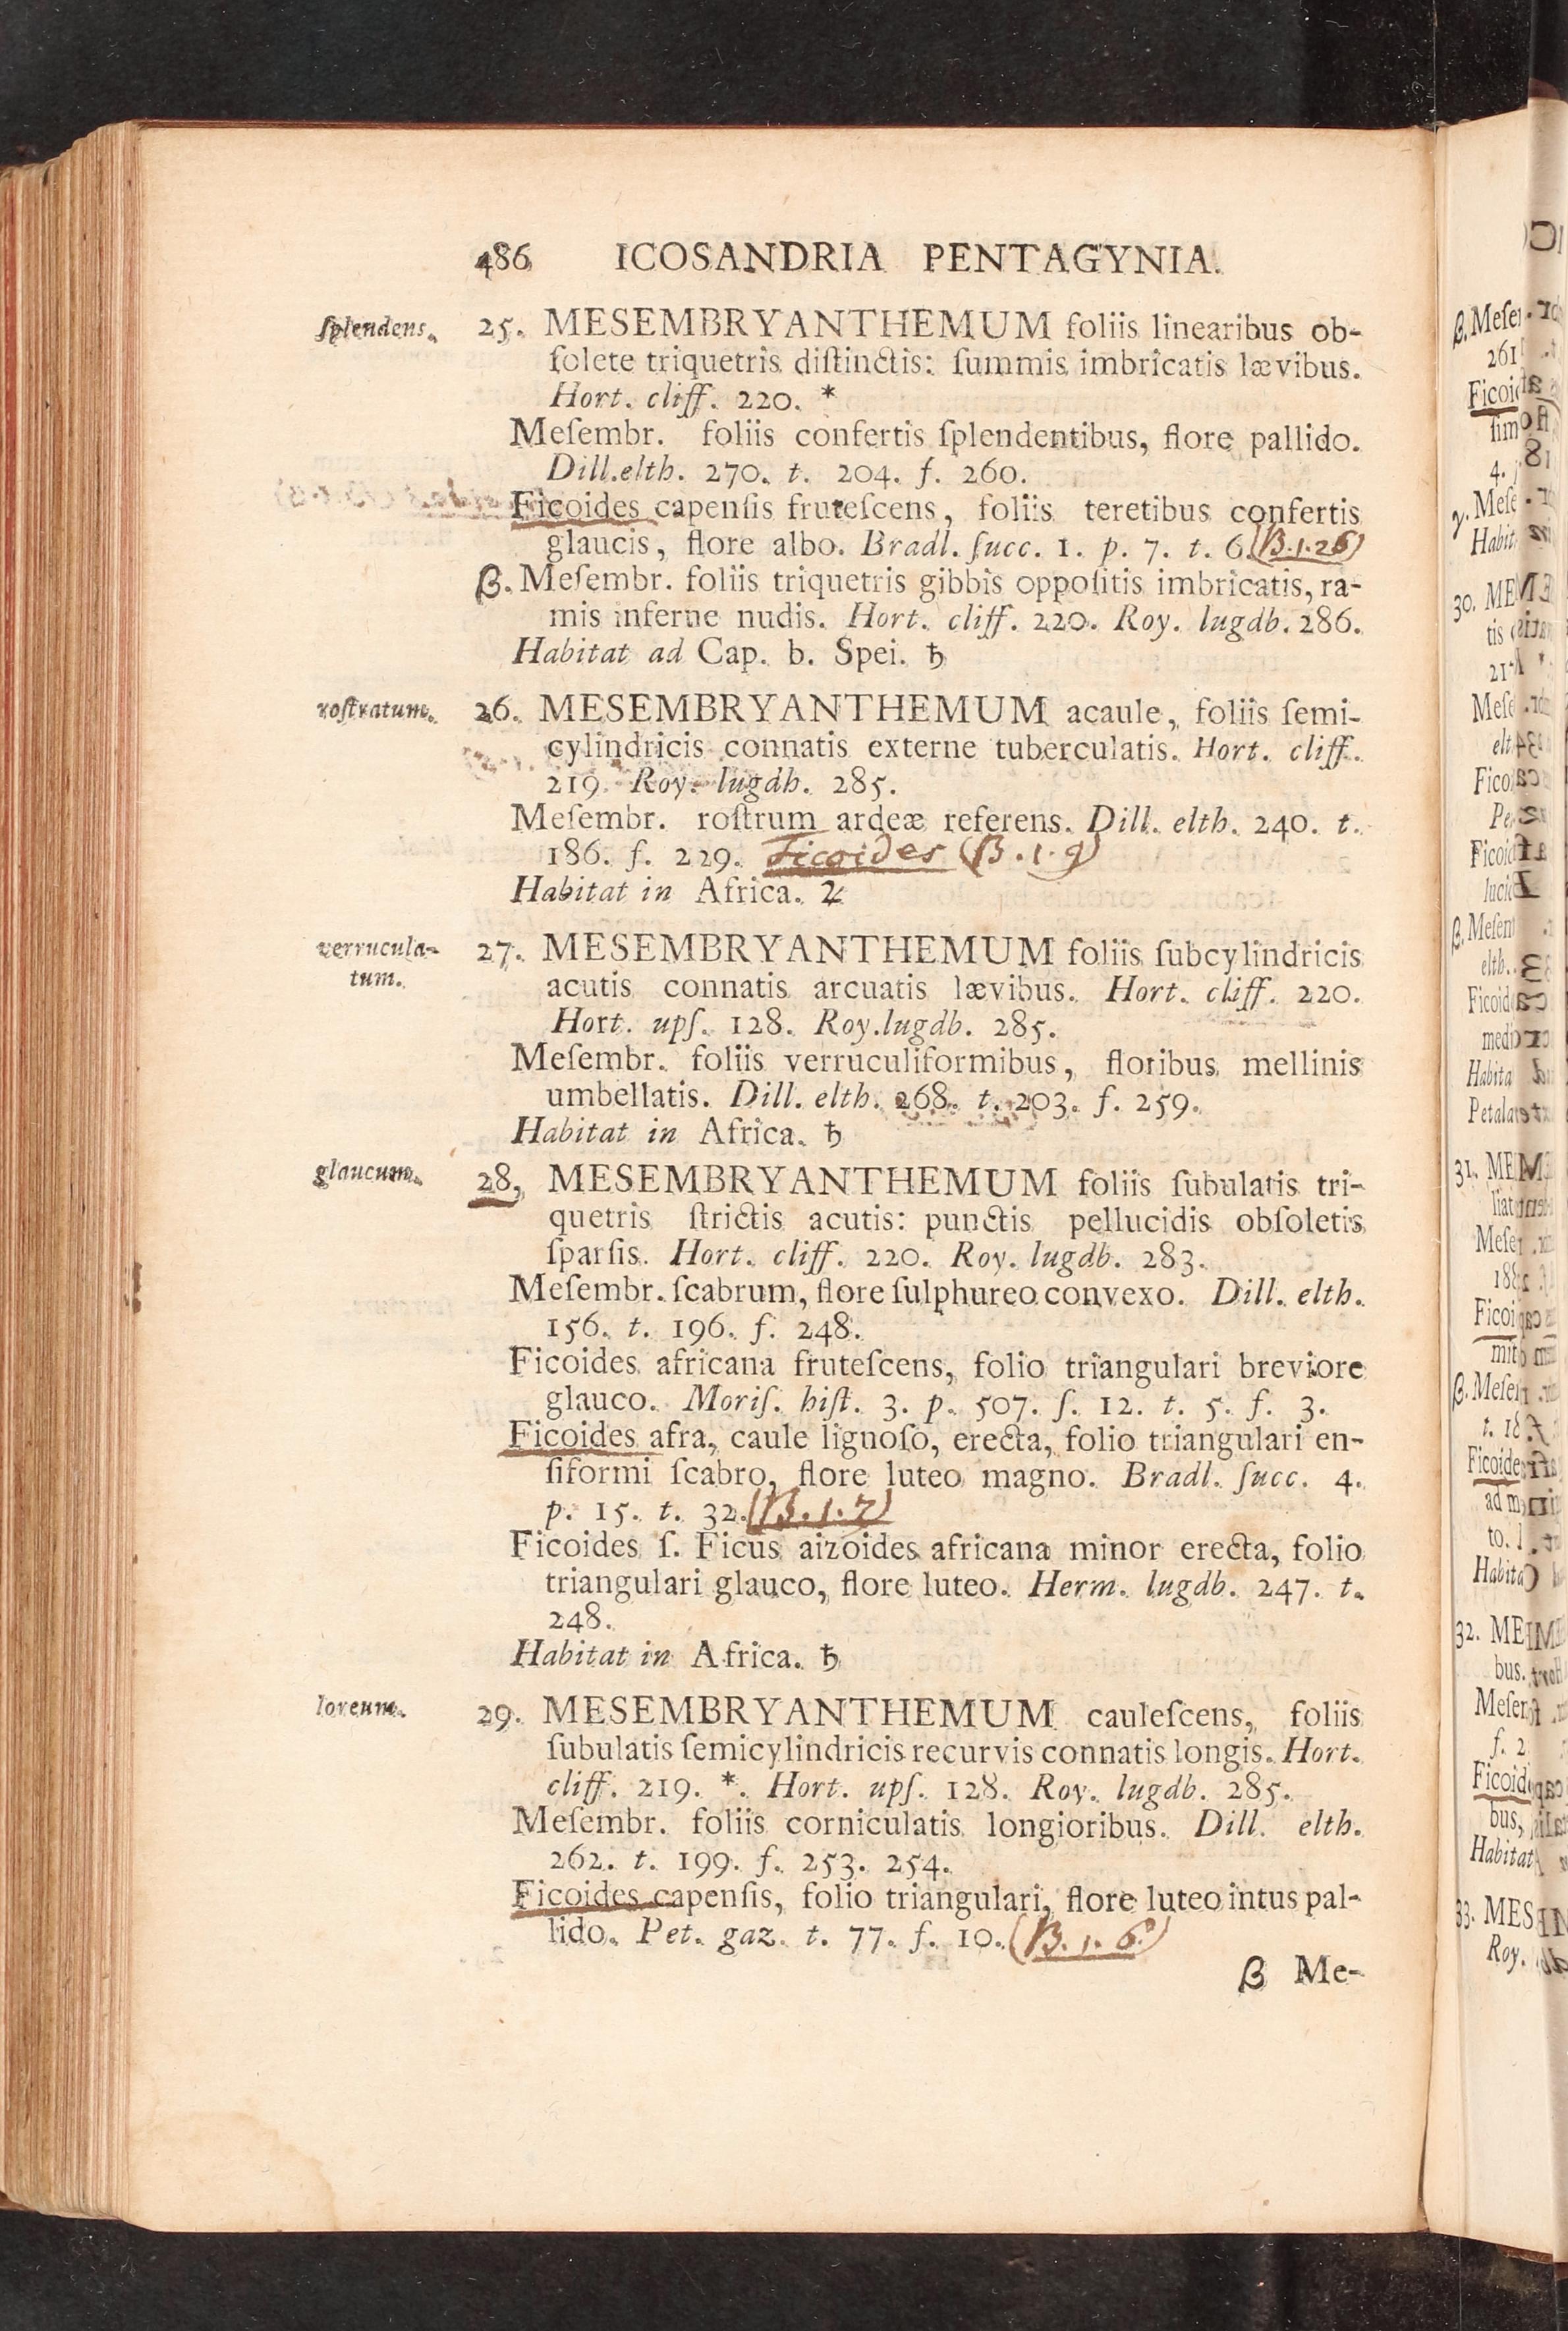 486 ICOSANDRIA PENTAGYNIA.
ſplendens. 25. MESEMBRYANTHEMUM foliis linearibus ob-
ſolete triquetris diſtinctis: ſummis imbricatis lævibus.
Hort. cliff. 220. *
Meſembr. foliis confertis ſplendentibus, flore pallido.
Dill.elth. 270. t. 204. f. 260.
Ficoides capenſis fruteſcens, foliis teretibus confertis
glaucis, flore albo. Bradl. ſucc. 1. p. 7. t. 6. (B.1.26)
β. Meſembr. foliis triquetris gibbis oppoſitis imbricatis, ra-
mis inferne nudis. Hort. cliff. 220. Roy. lugdb. 286.
Habitat ad Cap. b. Spei. ♄
roſtratum. 26. MESEMBRYANTHEMUM acaule, foliis ſemi-
cylindricis connatis externe tuberculatis. Hort. cliff.
219. Roy. lugdb. 285.
Meſembr. roſtrum ardeæ referens. Dill. elth. 240. t.
186. f. 229. Ficoides (B.1.9)
Habitat in Africa. ♃
verrucula- 27. MESEMBRYANTHEMUM foliis ſubcylindricis
tum. acutis connatis arcuatis lævibus. Hort. cliff. 220.
Hort. upſ. 128. Roy.lugdb. 285.
Meſembr. foliis verruculiformibus, floribus mellinis
umbellatis. Dill. elth. 268. t. 203. f. 259.
Habitat in Africa. ♄
glaucum. 28. MESEMBRYANTHEMUM foliis ſubulatis tri-
quetris ſtrictis acutis: punctis pellucidis obſoletis
ſparſis. Hort. cliff. 220. Roy. lugdb. 283.
Meſembr. ſcabrum, flore ſulphureo convexo. Dill. elth.
156. t. 196. f. 248.
Ficoides africana fruteſcens, folio triangulari breviore
glauco. Moriſ. hiſt. 3. p. 507. ſ. 12. t. 5. f. 3.
Ficoides afra, caule lignoſo, erecta, folio triangulari en-
ſiformi ſcabro, flore luteo magno. Bradl. ſucc. 4.
p. 15. t. 32. (B.1.7)
Ficoides ſ. Ficus aizoides africana minor erecta, folio
triangulari glauco, flore luteo. Herm. lugdb. 247. t.
248.
Habitat in Africa. ♄
loreum. 29. MESEMBRYANTHEMUM cauleſcens, foliis
ſubulatis ſemicylindricis recurvis connatis longis. Hort.
cliff. 219. *. Hort. upſ. 128. Roy. lugdb. 285.
Meſembr. foliis corniculatis longioribus. Dill. elth.
262. t. 199. f. 253. 254.
Ficoides capenſis, folio triangulari, flore luteo intus pal-
lido. Pet. gaz. t. 77. f. 10. (B.1.6)
β Me-